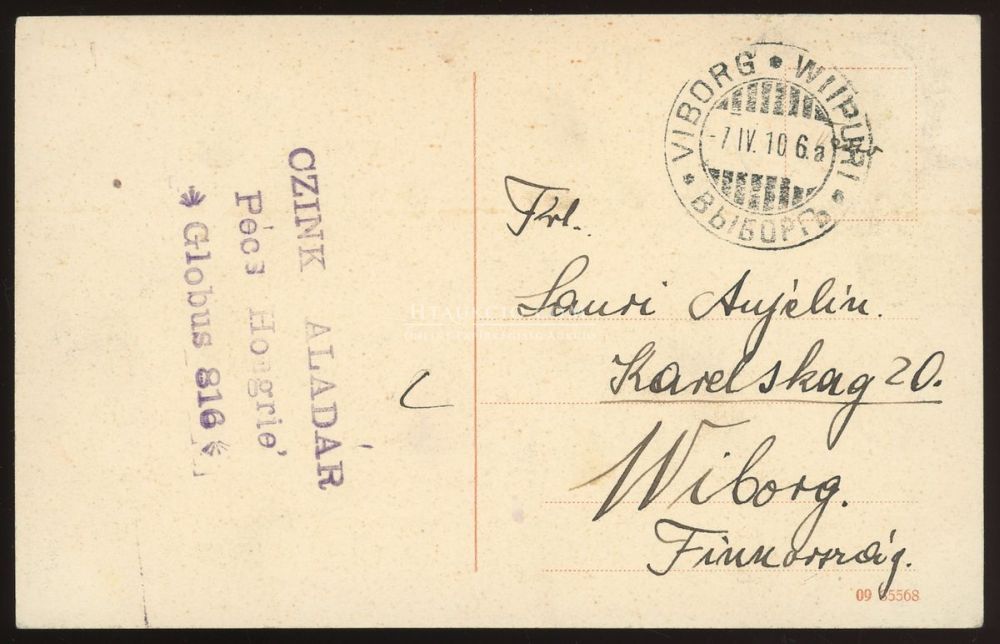 CZINK ALADÁR
Pécs Hongrie'
* Globus 816 *
VIBORG * WIIPURI * ВЫБОРГЪ *
-7 IV. 10. 6. a
Frl.
Sauri Anjelin.
Karelskag 20.
Wiborg.
Finnország.
09 65568